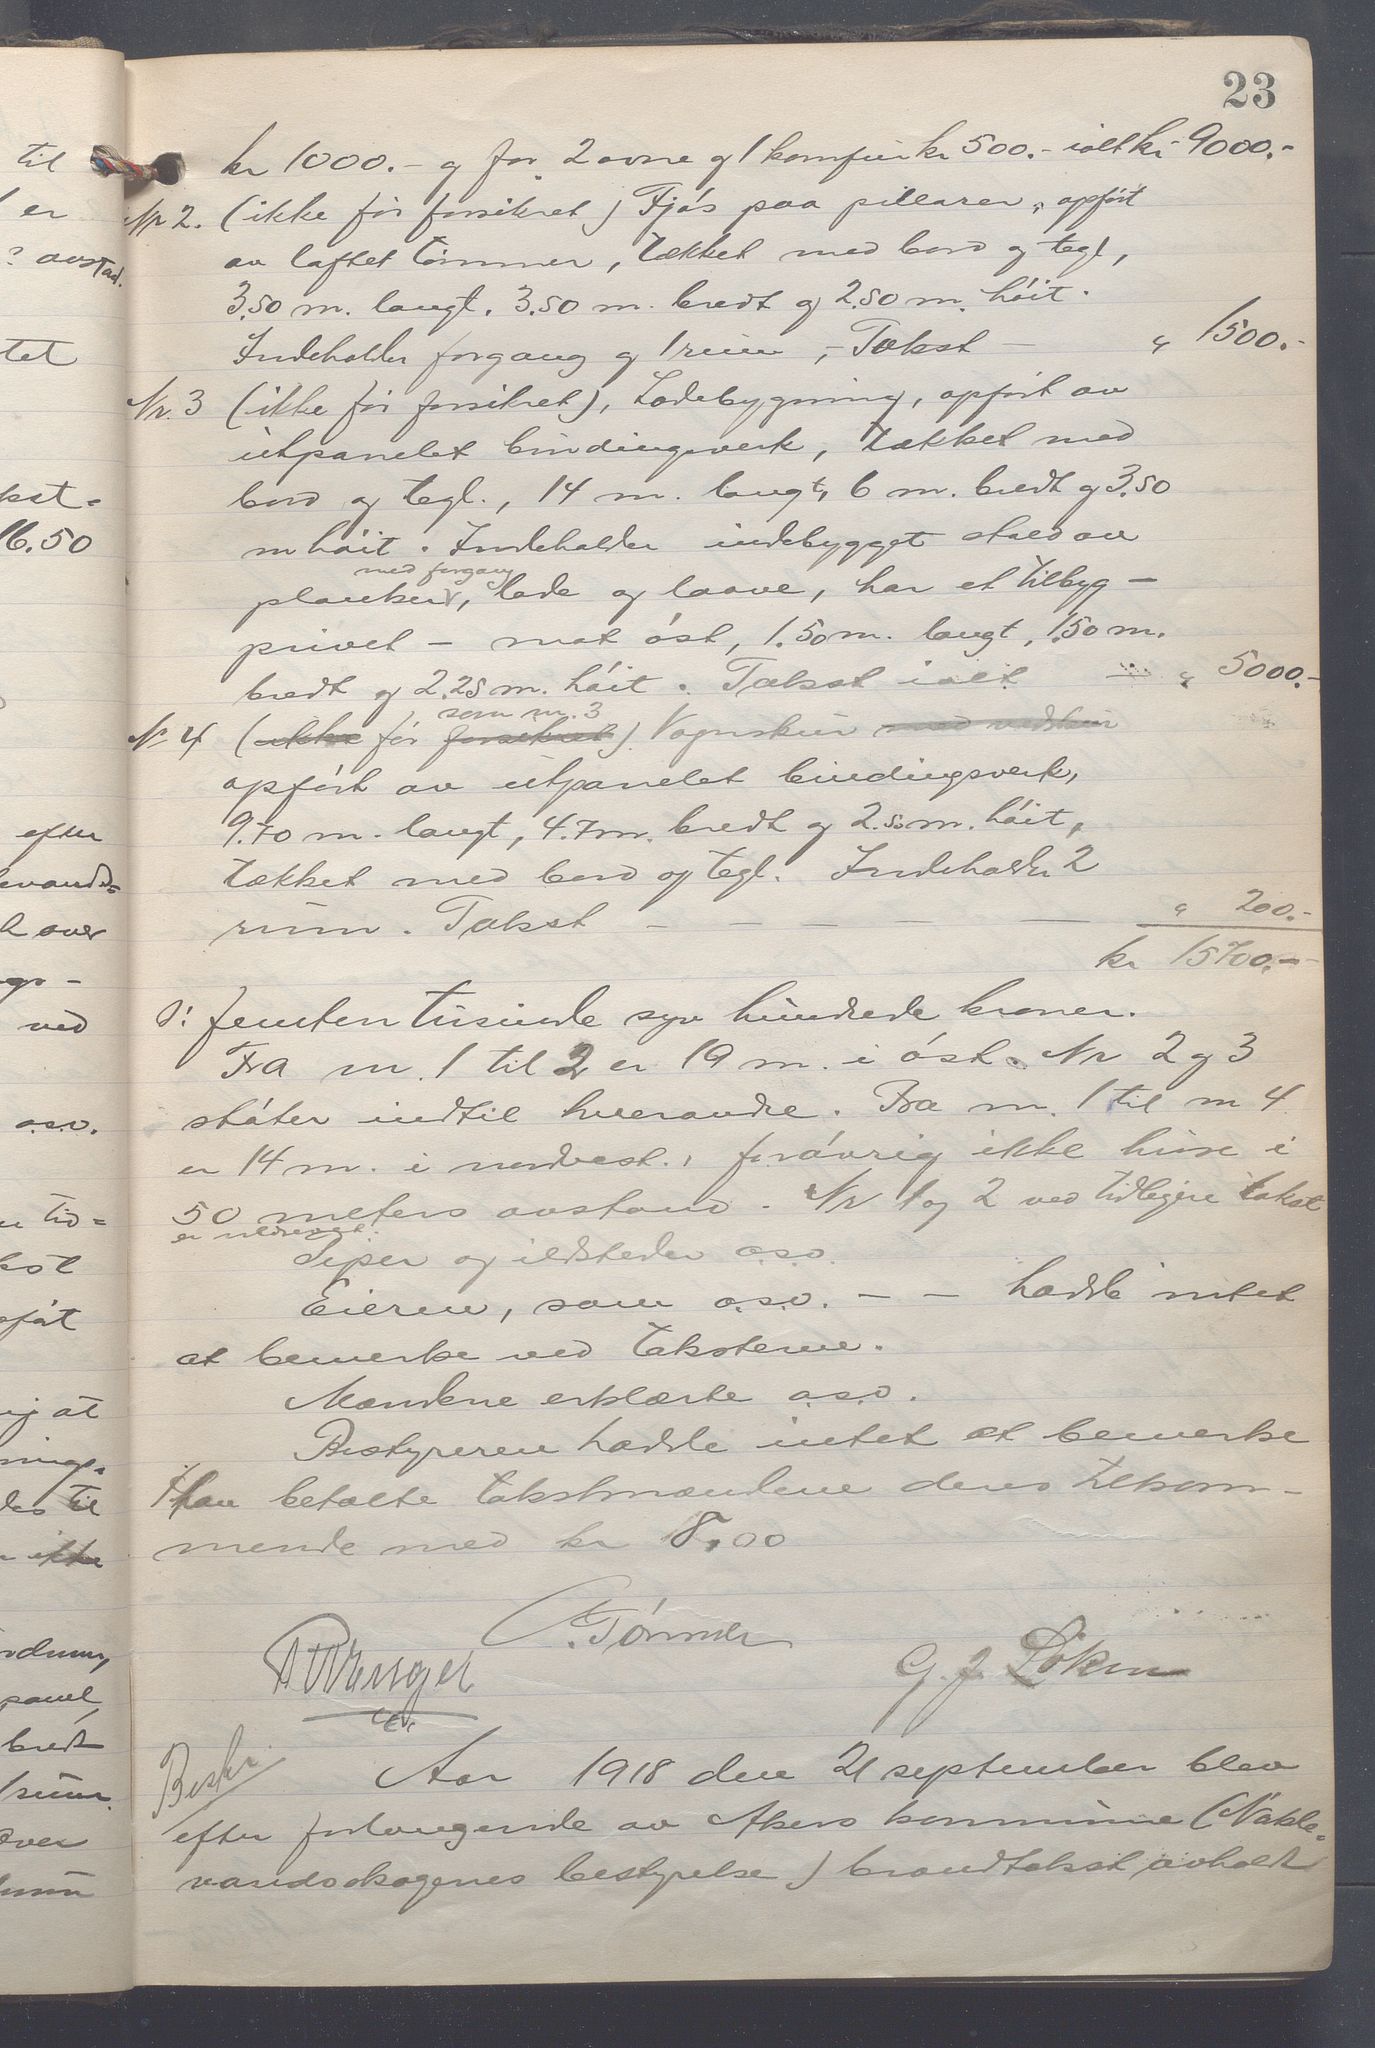 23
kr 1000.- og for 2 ovne og 1 komfur kr 500.- ialt kr 9000.-
Nr 2. (ikke før forsikret) Fjøs paa pillarer, opført
av laftet tømmer, tækket med bord og tegl,
3.50 m. langt, 3.50 m. bredt og 2.50 m. høit.
Indeholder forgang og 1 rum, - Takst - " 1500.-
Nr. 3 (ikke før forsikret), Ladebygning, opført av
utpanelet bindingsverk, tækket med
bord og tegl., 14 m. langt, 6 m. bredt og 3.50
m høit. Indeholder indebygget stald av
med forgang
planker, lade og laave, har et tilbyg -
privet - mot øst, 1.50 m. langt, 1.50 m.
bredt og 2.25 m. høit. Takst ialt " 5000.-
som nr. 3
Nr 4 (ikke før forsikret) Vognskur med vedskur
opført av utpanelet bindingsverk,
9.70 m. langt, 4.7 m. bredt og 2.50 m. høit,
tækket med bord og tegl. Indeholder 2
rum. Takst - - - - " 200.-
kr 15700.-
D: femten tusinde syv hundrede kroner.
Fra nr. 1 til 2 er 19 m. i øst. Nr 2 og 3
støter indtil hverandre. Fra nr. 1 til nr 4
er 14 m. i nordvest., forøvrig ikke huse i
50 meters avstand. Nr 1 og 2 ved tidligere takst
er nedrevet.
Piper og ildsteder o.s.v.
Eieren, som o.s.v. - - hadde intet
at bemerke ved taksterne.
Mændene erklærte o.s.v.
Bestyreren hadde intet at bemerke
Han betalte takstmændene deres tilkom-
mende med kr 8.00
Tønner
G. J. Løken
Beskr
Aar 1918 den 21 september blev
efter forlangende av Akers kommune (Nøkle-
vandsskogenes bestyrelse) brandtakst avholdt
til
er
avstand.
tet
kst-
16.50
efter
over
ved
o.s.v.
tid-
at
til
ikke
panel,
bredt
rum.
over